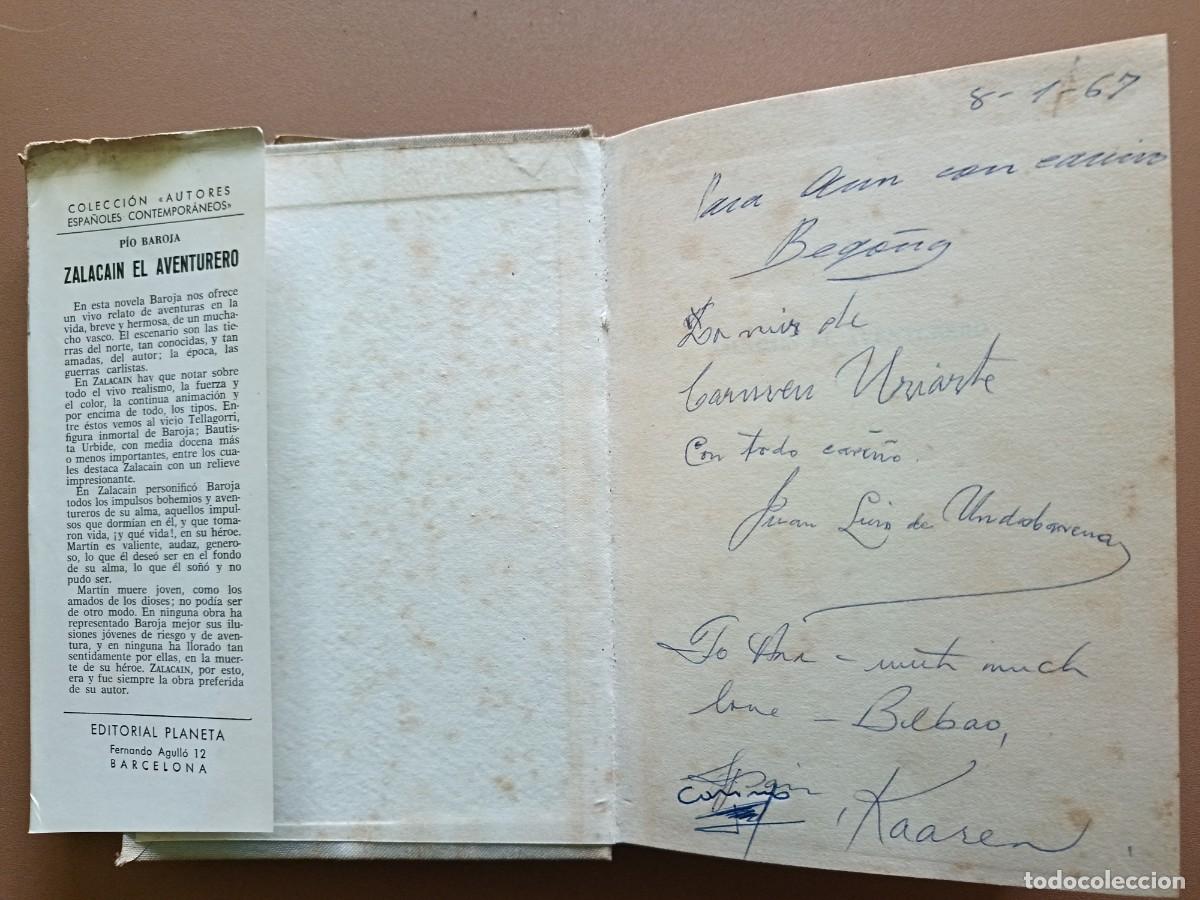 COLECCIÓN «AUTORES
ESPAÑOLES CONTEMPORÁNEOS»
PÍO BAROJA
ZALACAIN EL AVENTURERO
En esta novela Baroja nos ofrece
un vivo relato de aventuras en la
vida, breve y hermosa, de un mucha-
cho vasco. El escenario son las tie-
rras del norte, tan conocidas, y tan
amadas, del autor; la época, las
guerras carlistas.
En ZALACAIN hay que notar sobre
todo el vivo realismo, la fuerza y
el color, la continua animación y
por encima de todo, los tipos. En-
tre éstos vemos al viejo Tellagorri,
figura inmortal de Baroja; Bautis-
ta Urbide, con media docena más
o menos importantes, entre los cua-
les destaca Zalacain con un relieve
impresionante.
En Zalacain personificó Baroja
todos los impulsos bohemios y aven-
tureros de su alma, aquellos impul-
sos que dormían en él, y que toma-
ron vida, ¡y qué vida!, en su héroe.
Martín es valiente, audaz, genero-
so, lo que él deseó ser en el fondo
de su alma, lo que él soñó y no
pudo ser.
Martín muere joven, como los
amados de los dioses; no podía ser
de otro modo. En ninguna obra ha
representado Baroja mejor sus ilu-
siones jóvenes de riesgo y de aven-
tura, y en ninguna ha llorado tan
sentidamente por ellas, en la muer-
te de su héroe. ZALACAIN, por esto,
era y fue siempre la obra preferida
de su autor.
EDITORIAL PLANETA
Fernando Agulló 12
BARCELONA
8-1-67
Para con cariño
Begoña
de
Carmen Uriarte
Con todo cariño.
Juan Luis de Undabarrena
To Ana - with much
love - Bilbao,
Spain, Kaaren
todocoleccion